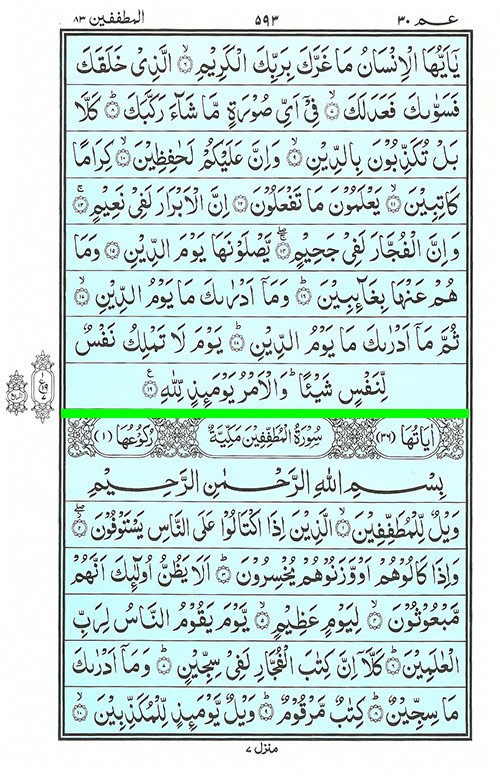 عم ٣٠ ٥٩٣ المطففين ٨٣
يٰۤاَيُّهَا الْاِنْسَانُ مَا غَرَّكَ بِرَبِّكَ الْكَرِيْمِ ۙ‏﴿۶﴾ الَّذِيْ خَلَقَكَ
فَسَوّٰىكَ فَعَدَلَكَ ۙ‏﴿۷﴾ فِيْۤ اَيِّ صُوْرَةٍ مَّا شَآءَ رَكَّبَكَ ؕ‏﴿۸﴾ كَلَّا
بَلْ تُكَذِّبُوْنَ بِالدِّيْنِ ۙ‏﴿۹﴾ وَاِنَّ عَلَيْكُمْ لَحٰفِظِيْنَ ۙ‏﴿۱۰﴾ كِرَامًا
كَاتِبِيْنَ ۙ‏﴿۱۱﴾ يَعْلَمُوْنَ مَا تَفْعَلُوْنَ ‏﴿۱۲﴾ اِنَّ الْاَبْرَارَ لَفِيْ نَعِيْمٍ ۚ‏﴿۱۳﴾
وَاِنَّ الْفُجَّارَ لَفِيْ جَحِيْمٍ ۚۖ‏﴿۱۴﴾ يَّصْلَوْنَهَا يَوْمَ الدِّيْنِ ‏﴿۱۵﴾ وَمَا
هُمْ عَنْهَا بِغَآئِبِيْنَ ؕ‏﴿۱۶﴾ وَمَاۤ اَدْرٰىكَ مَا يَوْمُ الدِّيْنِ ۙ‏﴿۱۷﴾
ثُمَّ مَاۤ اَدْرٰىكَ مَا يَوْمُ الدِّيْنِ ؕ‏﴿۱۸﴾ يَوْمَ لَا تَمْلِكُ نَفْسٌ
لِّنَفْسٍ شَيْئًا ؕ وَالْاَمْرُ يَوْمَئِذٍ لِّلّٰهِ ‏﴿۱۹﴾
اٰيَاتُهَا (٣٦) سُوْرَةُ الْمُطَفِّفِيْنَ مَكِّيَّةٌ رُكُوْعُهَا (١)
بِسْمِ اللّٰهِ الرَّحْمٰنِ الرَّحِيْمِ
وَيْلٌ لِّلْمُطَفِّفِيْنَ ۙ‏﴿۱﴾ الَّذِيْنَ اِذَا اكْتَالُوْا عَلَى النَّاسِ يَسْتَوْفُوْنَ ۖ‏﴿۲﴾
وَاِذَا كَالُوْهُمْ اَوْ وَّزَنُوْهُمْ يُخْسِرُوْنَ ؕ‏﴿۳﴾ اَلَا يَظُنُّ اُولٰٓئِكَ اَنَّهُمْ
مَّبْعُوْثُوْنَ ۙ‏﴿۴﴾ لِيَوْمٍ عَظِيْمٍ ۙ‏﴿۵﴾ يَّوْمَ يَقُوْمُ النَّاسُ لِرَبِّ
الْعٰلَمِيْنَ ؕ‏﴿۶﴾ كَلَّاۤ اِنَّ كِتٰبَ الْفُجَّارِ لَفِيْ سِجِّيْنٍ ؕ‏﴿۷﴾ وَمَاۤ اَدْرٰىكَ
مَا سِجِّيْنٌ ؕ‏﴿۸﴾ كِتٰبٌ مَّرْقُوْمٌ ؕ‏﴿۹﴾ وَيْلٌ يَّوْمَئِذٍ لِّلْمُكَذِّبِيْنَ ۙ‏﴿۱۰﴾
منزل ٧